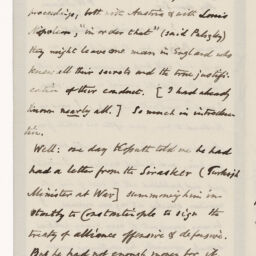 proceedings, both with Austria & with Louis
Napoleon, in order that" (said Pulszky)
they might leave one man in England who
knew all their secrets and the true justifi-
cation of their conduct. [I had already
known nearly all.] So much in introduc-
tion.
Well: one day Kossuth told me he had
had a letter from the Sirasker (Turkish
Minister at War) summoning him in-
stantly to Constantinople to sign the
treaty of alliance offensive & defensive.
But he had not enough money for it